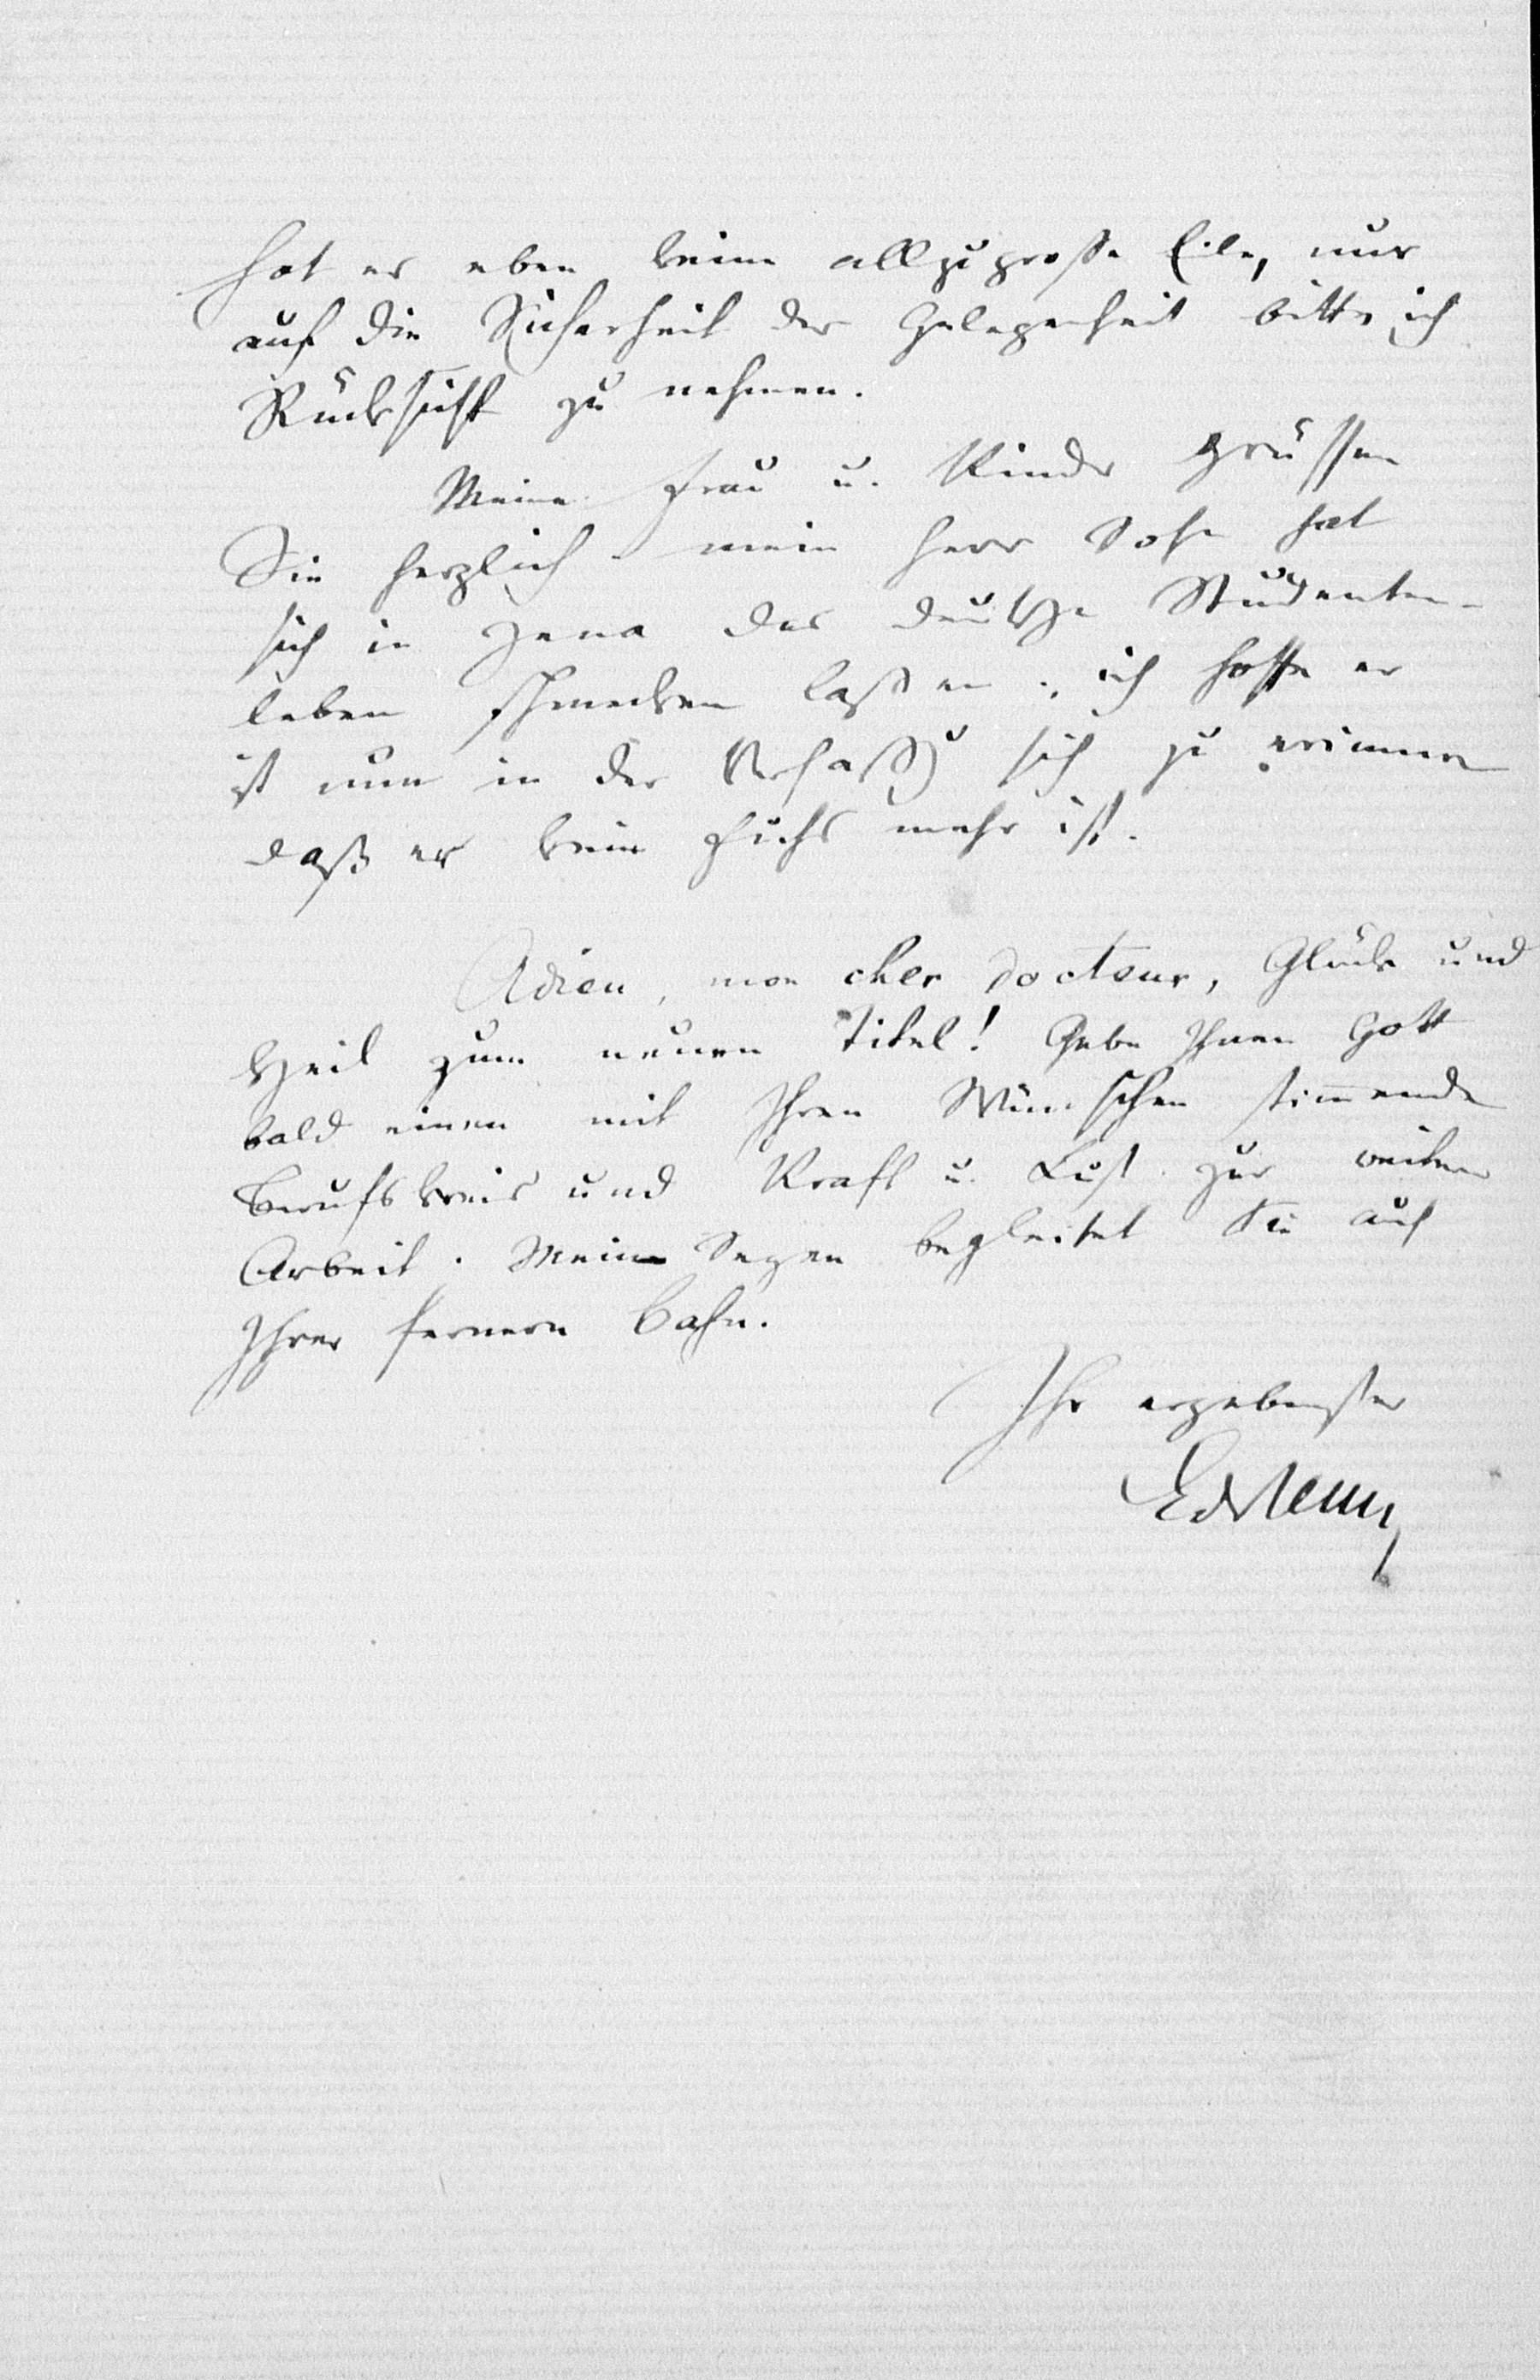 hat es eben keine allzugroße Eile, nur
auf die Sicherheit der Gelegenheit bitte ich
Rücksicht zu nehmen.
Meine Frau u. Kinder grüssen
Sie herzlich mein Herr Sohn hat
sich in Jena das deutsche Studenten-
leben schmecken laßen; ich hoffe er
ist nun in der sich zu erinnern
daß er kein Fuchs mehr ist.
Adieu, mon cher docteur, Glück und
Heil zum neuen Titel! Gebe Ihnen Gott
bald einen mit Ihren Wünschen stim̅enden
Berufskreis und Kraft u. Lust zur weitern
Arbeit. Mein Segen begleitet Sie auf
Ihrer fernern Bahn.
Ihr ergebenster
EdReuss